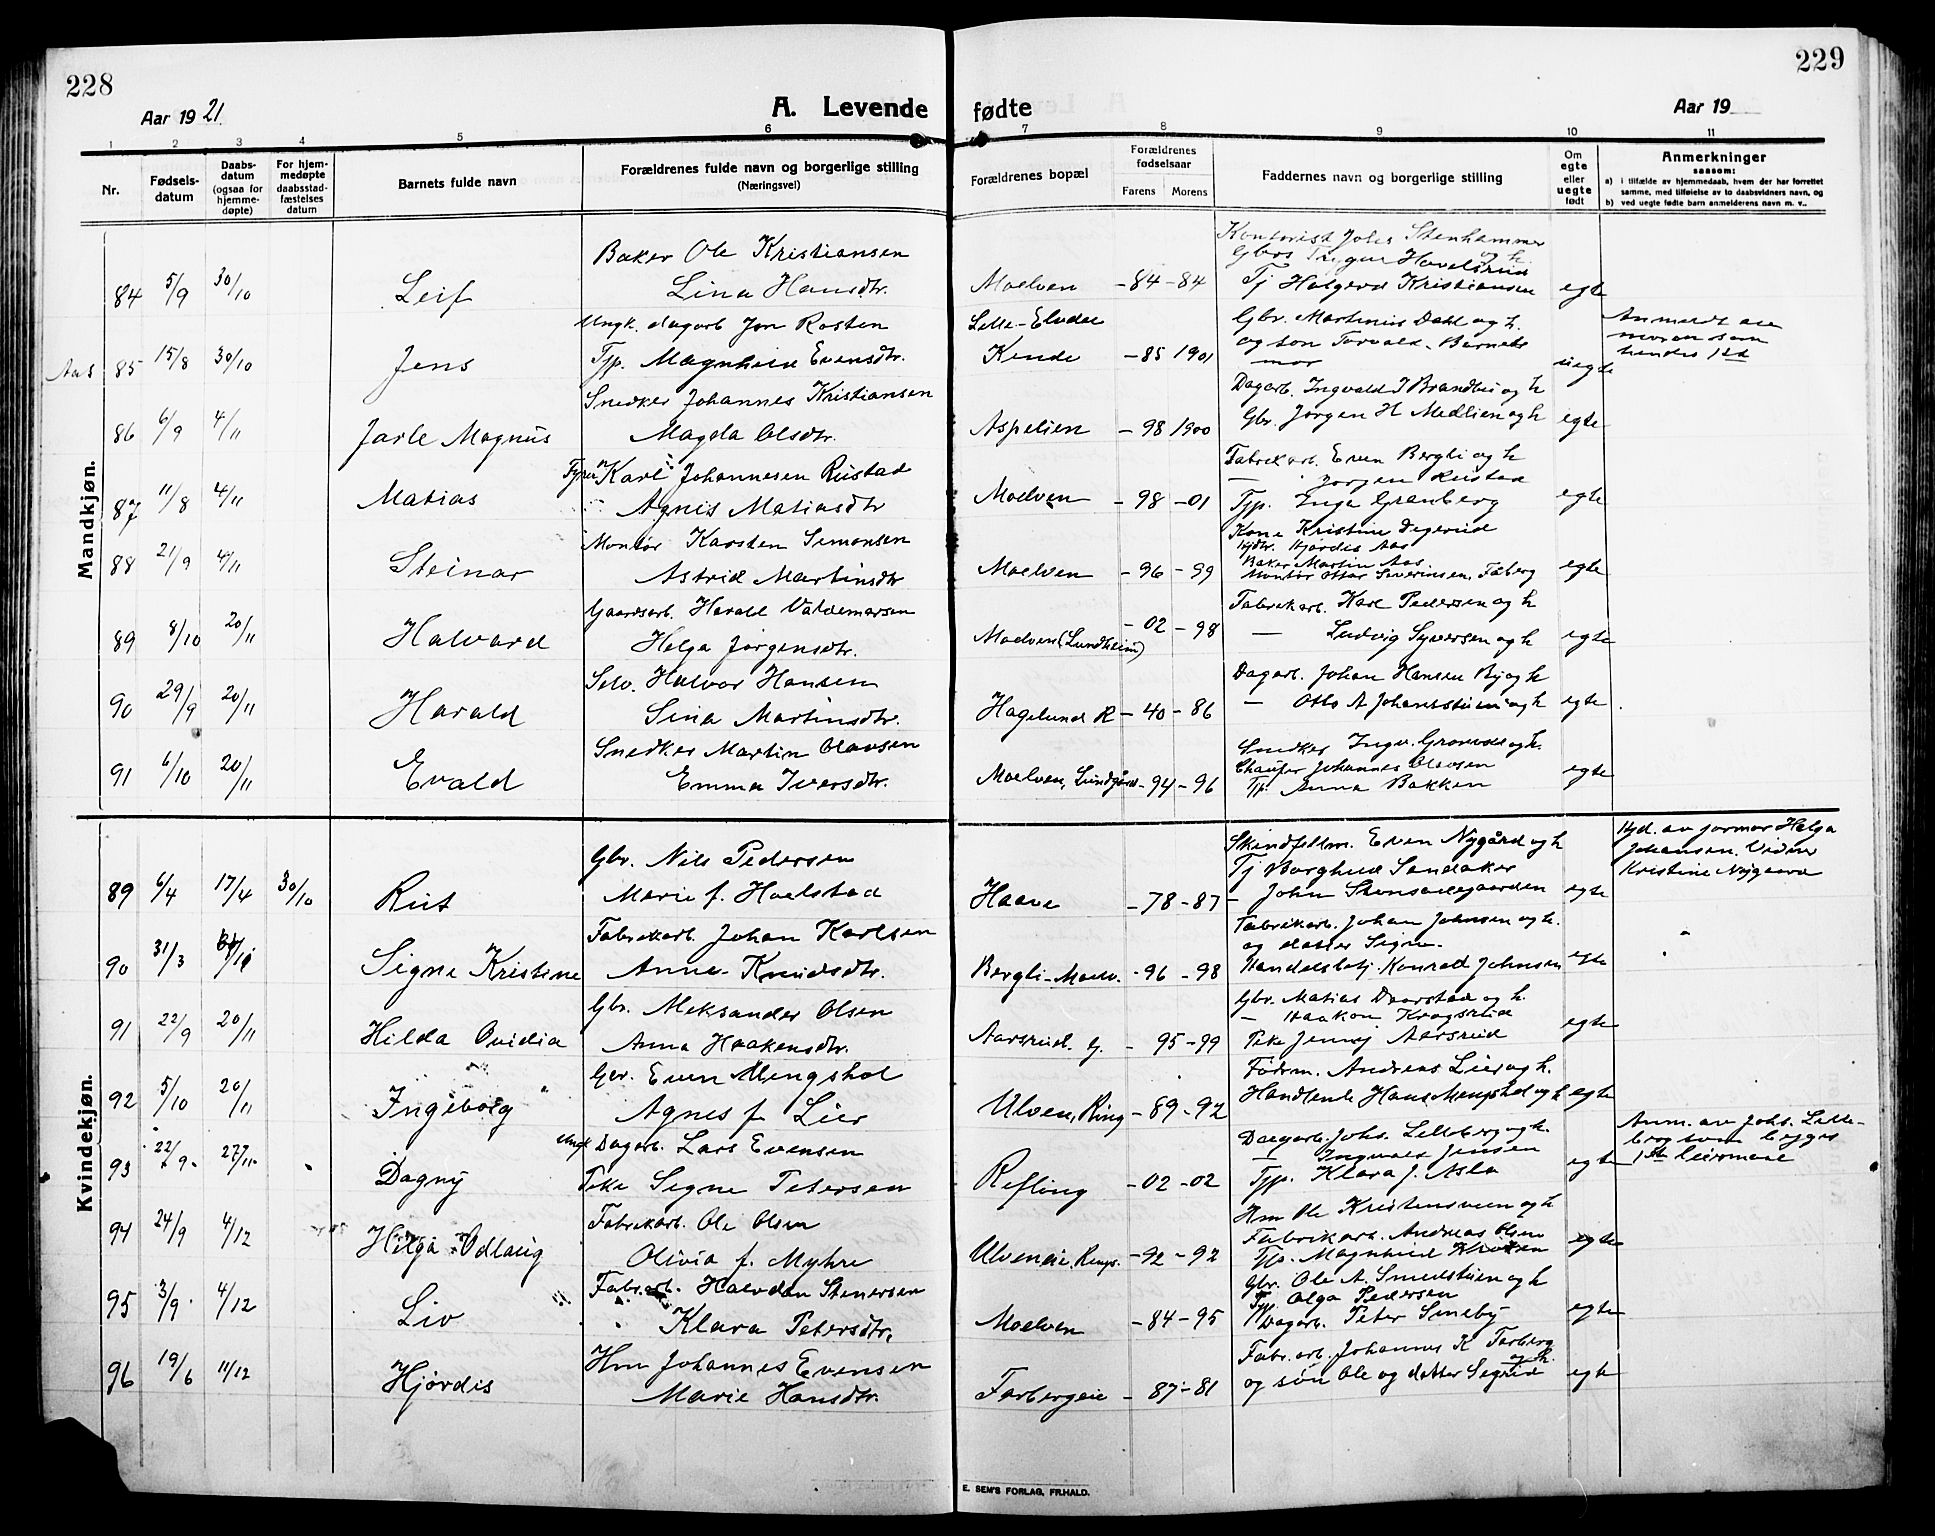 228
Aar 1921.
A. Levende
fødte
Aar 19
229
1 2 3 4 5 6 7 8 9 10 11
Nr.
Fødsels-
datum
Daabs-
datum
(ogsaa for
hjemme-
døpte)
For hjem-
medøpte
daabsstad-
fæstelses
datum
Barnets fulde navn
Forældrenes fulde navn og borgerlige stilling
(Næringsvei)
Forældrenes bopæl
Forældrenes
fødselsaar
Farens Morens
Faddernes navn og borgerlige stilling
Om
egte
eller
uegte
født
Anmerkninger
saasom:
a) i tilfælde av hjemmedaab, hvem der har forrettet
samme, med tilføielse av to daabsvidners navn, og
b) ved uegte fødte barn anmelderens navn m. v..
Mandkjøn.
Kontorist Johs Stenhammer
Baker Ole Kristiansen
84 5/9 30/10 Leif Lina Hansdtr. Moelven -84-84 Tj Halgerd Kristiansen egte
Ungk. dagarb Jon Rosten Lille-Elvdal Gbr. Martinius Dahl og h. Anmeldt av
Aas 85 15/8 30/10 Jens Tjp. Magnhild Evensdtr. Kende -85 1901 og son Torvald. Barnets uegte moren som
mor hendes 1st
Snedker Johannes Kristiansen Dagarb. Ingvald J Brandlie og h
86 6/9 4/11 Jarle Magnus Magda Olsdtr. Aspelien -98 1900 Gbr. Jørgen H Medlien og h egte
Karl Johannesen Rustad Fabrikarb. Even Bergli og h
— Jørgen Rustad
87 11/8 4/11 Matias Agnis Matiasdtr Moelven -98 -01 Tjp. Inga Granberg egte
Montør Karsten Simonsen Kone Kristine Degerud
Hjørdis Aas
Baker Martin Aas
88 21/9 4/11 Steinar Astrid Martinsdtr Moelven -96 -99 Montør Ottar Severinsen, Faberg egte
Gaardsarb. Harald Valdemarsen Fabrikarb. Karl Pedersen og h
89 8/10 20/11 Halvard Helga Jørgensdtr. Moelven (Lundheim) -02 -98 — Ludvig Syversen og h egte
Selv. Halvor Hansen Dagarb. Johan Hansen By og h
90 29/9 20/11 Harald Sina Martinsdtr. Hagelund R -40 -86 — Otto A Johannstuen og h egte
Snedker Martin Olausen Snedker Ingv. og h.
Chaufør Johannes Olavsen
91 6/10 20/11 Evald Emma Iversdtr. Moelven, Lundgård -94 -96 Tj. Anna Bakken egte
Kvindekjøn.
Gbr. Nils Pedersen Skindfellm. Even Nygård og h Hjd. av jormor Helga
Tj Borghild Sandaker Johansen. Vidner
89 6/4 17/4 30/10 Rut Marie f. Hoelstad Haave -78-87 - John Stensadegaarden egte Kristine Nygaard
Fabrikarb. Johan Karlsen Fabrikarb. Johan Johnsen og h.
og datter Signe.
90 31/3 Signe Kristine Anne Knudsdtr. Bergli-Moelv. -96 -98 Handelsbetj. Konrad Johnsen egte
Gbr. Aleksander Olsen Gbr. Matias Dværstad og h.
— Haakon Krogsrud
91 22/9 20/11 Hilda Ovidia Anna Haakensdtr. Aarsrud. g. - 95-99 Pike Jenny Aarsrud egte
Gbr. Even Mengshol Fødrm. Andreas Lier og h.
92 5/10 20/11 Ingeborg Agnes f Lier Ulven, Ring -89-92 Handlende Hans Mengshol og h egte
Ungk Dagarb. Lars Evensen Dagarb. Johs. Lilleberg og h. Anm. av Johs. Lille-
— Ingvald Jensen berg som begges
93 22/9. 27/11. Dagny Pike Signe Petersen Refling -02 -02 Tjp. Klara J. Asla egte 1st leiermaal
Fabrikarb. Ole Olsen Hm Ole Kristensveen og h
Fabrikarb. Andreas Olsen
94 24/9 4/12 Helga Odlaug Olivia f. Myhre Ulveneie, Rings. -92 -92 Tjp. Magnhild Kroken egte
Fabr.arb. Halvdan Stenersen Gbr. Ole A. Smedstuen og h
Tjp. Olga Pedersen
95 3/9. 4/12 Liv Klara Petersdtr. Moelven -84-95 Dagarb. Peter Smeby egte
Hm Johannes Evensen Fabr.arb. Johannes K Farberg
og h.
96 19/6 11/12 Hjørdis Marie Hansdtr. Farbergeie -87-81 og søn Ole og datter Sigrid egte
E. SEM'S FORLAG, FR.HALD.